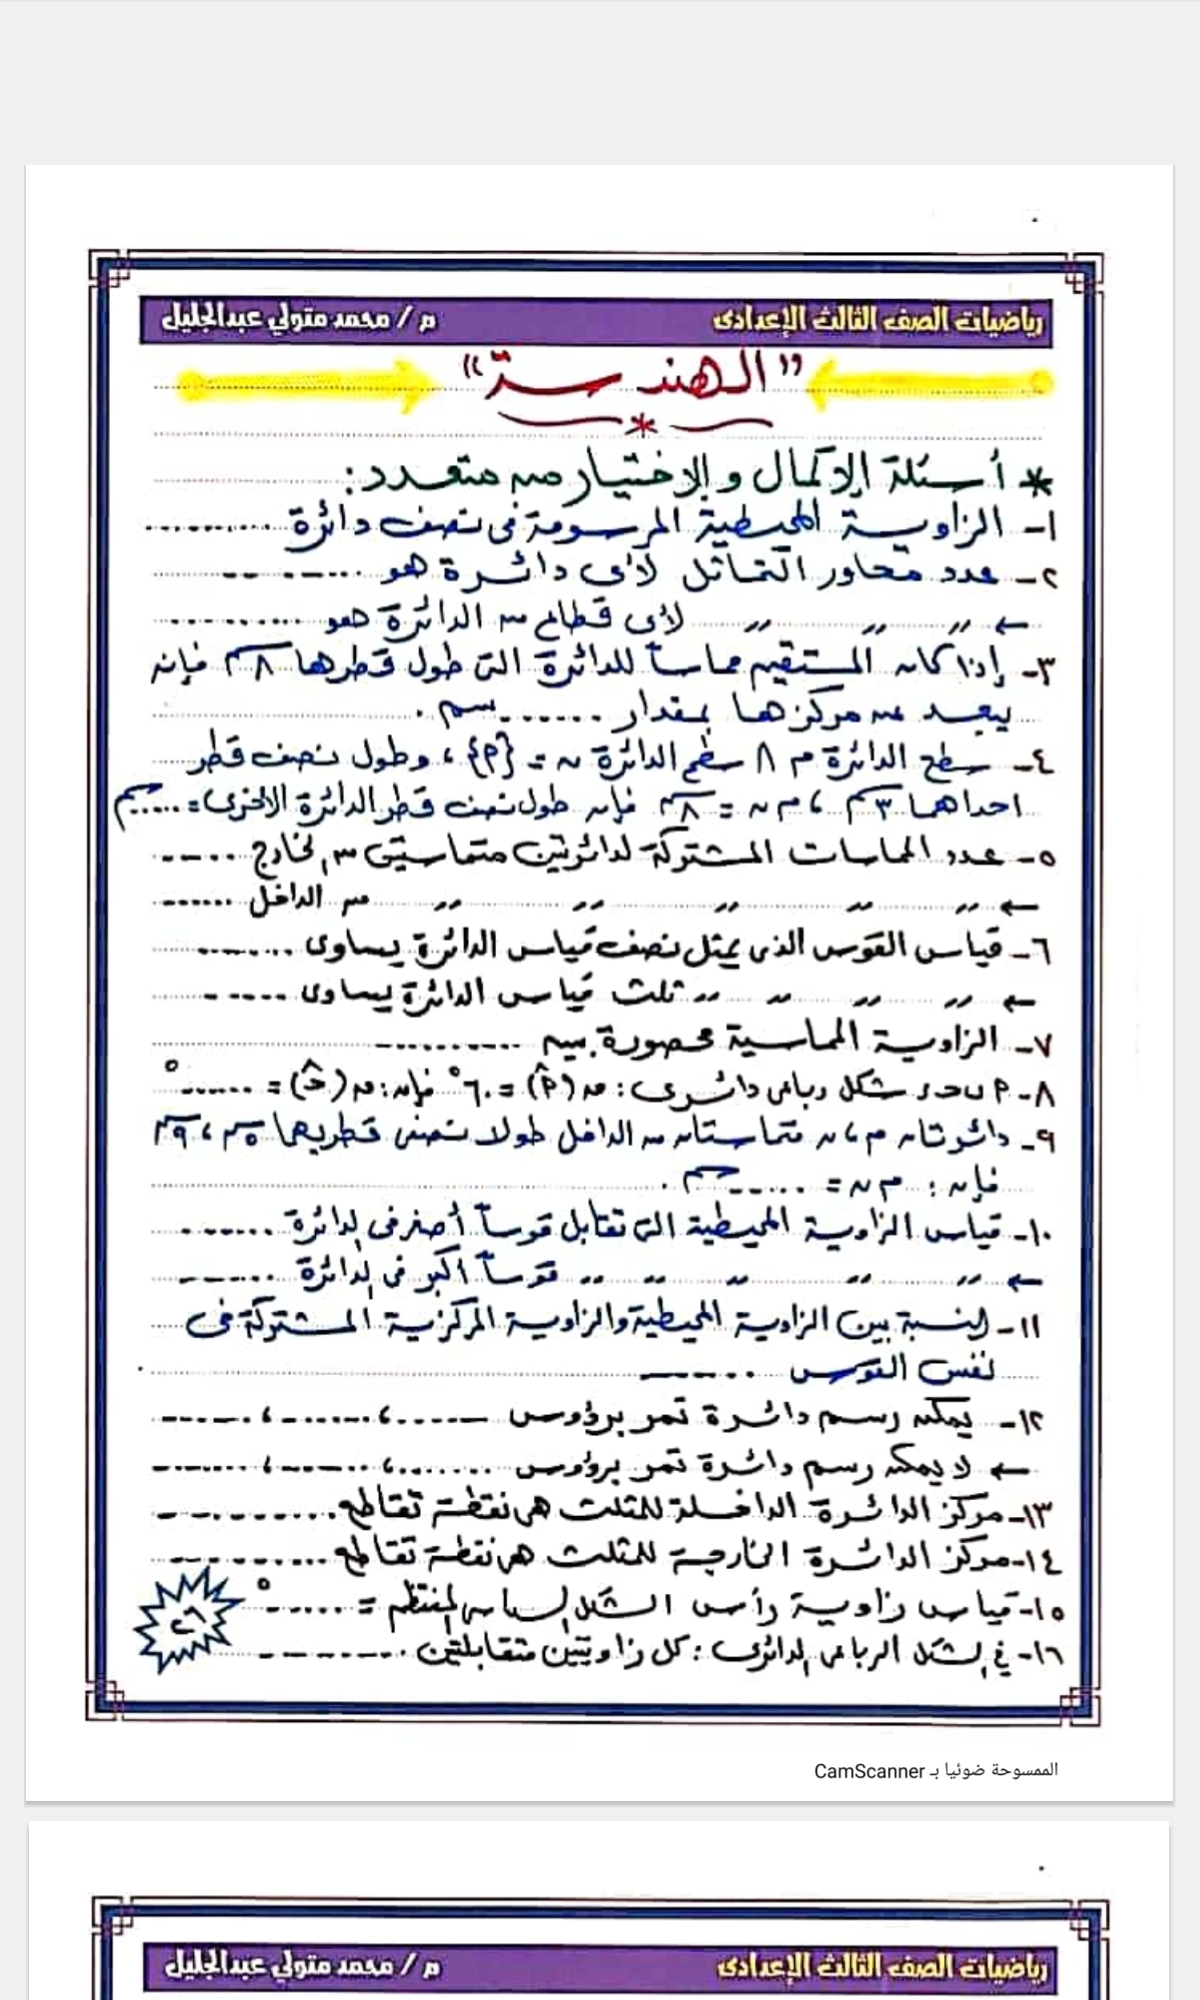 رياضيات الصف الثالث الإعدادى م / محمد متولي عبدالجليل
"الهندسة"
* أسئلة الإكمال والإختيار من متعدد:
١- الزاوية المحيطية المرسومة فى نصف دائرة ..........
٢- عدد محاور التماثل لأى دائرة هو ..........
← // // // لأى قطاع من الدائرة هو ..........
٣- إذا كان المستقيم مماساً للدائرة التى طول قطرها ٨ سم فإنه
يبعد عن مركزها بمقدار ....... سم .
٤- سطح الدائرة م ∩ سطح الدائرة ن = {P} ، وطول نصف قطر
احداهما ٣ سم ، م ن = ٨ سم فإن طول نصف قطر الدائرة الأخرى = ...... سم
٥- عدد المماسات المشتركة لدائرتين متماستين من الخارج ......
← // // // // // من الداخل ......
٦- قياس القوس الذى يمثل نصف قياس الدائرة يساوى ........
← // // // // ثلث قياس الدائرة يساوى ......
٧- الزاوية المماسية محصورة بين ..........
٨- P ب حـ د شكل رباعى دائرى : ق(P̂) = ٦٠° فإن : ق(حـ̂) = ......°
٩- دائرتان م ، ن متماستان من الداخل طولا نصفى قطريهما ٥ سم ، ٩ سم
فإن : م ن = ...... سم .
١٠- قياس الزاوية المحيطية التى تقابل قوساً أصغر فى الدائرة .......
← // // // // // قوساً أكبر فى الدائرة .......
١١- النسبة بين الزاوية المحيطية والزاوية المركزية المشتركة فى
نفس القوس ........
١٢- يمكن رسم دائرة تمر برؤوس ......، ......، ......
← لا يمكن رسم دائرة تمر برؤوس ......، ......، ......
١٣- مركز الدائرة الداخلة للمثلث هى نقطة تقاطع ..........
١٤- مركز الدائرة الخارجة للمثلث هى نقطة تقاطع ..........
١٥- قياس زاوية رأس الشكل السداسى المنتظم = ......°
١٦- فى الشكل الرباعى الدائرى : كل زاويتين متقابلتين ..........
٤٦
الممسوحة ضوئيا بـ CamScanner
رياضيات الصف الثالث الإعدادى م / محمد متولي عبدالجليل